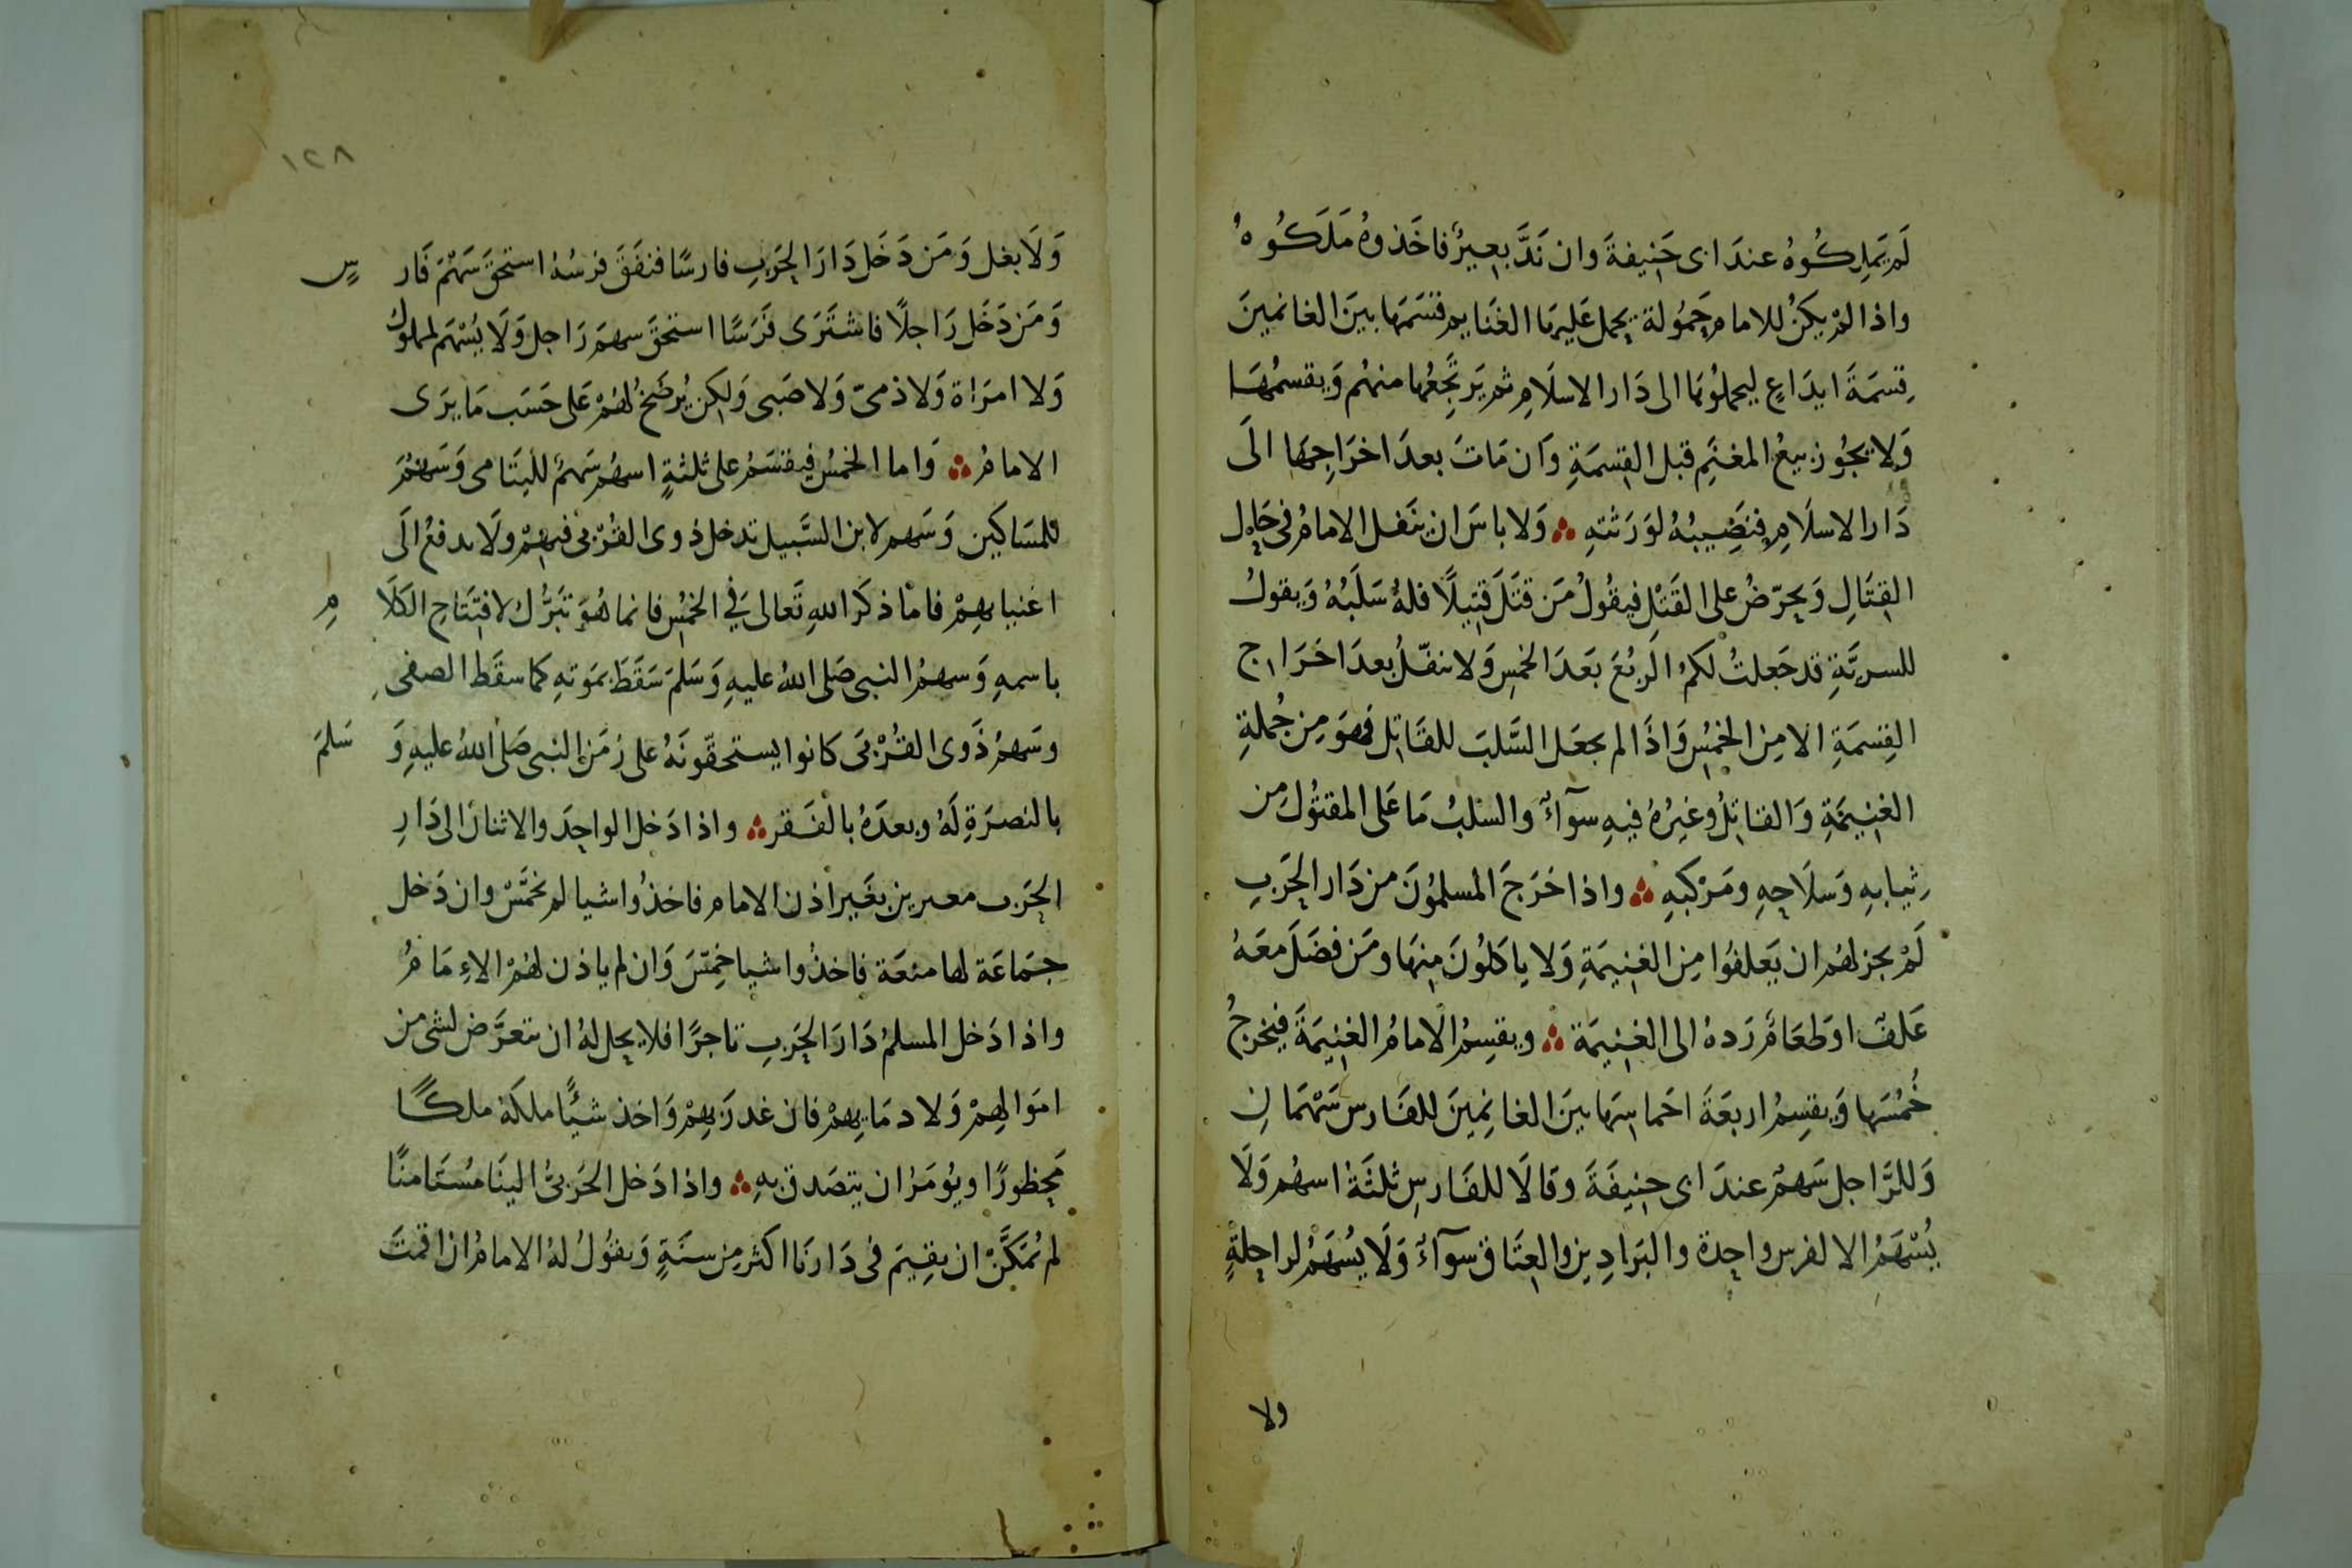 لَم يَملِكُوهُ عندَ ابى حَنِيفةَ وان نَدَّ بعيرٌ فاخَذوهُ مَلَكُوهُ
واذا لمْ يكنْ للامامِ حَمُولة يحمل عَليهَا الغَنايم قسَمَهَا بينَ الغانمينَ
قِسمَةَ ايدَاعٍ ليحملوُهَا الى دَار الاسلَامِ ثم يَرتَجِعُها منهُم وَيقسمُهَا
وَلا يجُوز بيعُ المغنَمِ قبل القِسمَةِ وَان مَاتَ بعدَ اخرَاجِهَا الَى
دَار الاسلَامِ فنَصِيبُهُ لوَرَثتهِ ۞ وَلا باسَ ان ينَفل الامامُ فى حَالِ
القِتَالِ وَيحَرّضُ على القَتْلِ فيقُولُ مَن قتَلَ قتِيلًا فلهُ سَلَبُهُ وَيقولُ
للسريَّةِ قد جَعلتُ لكمُ الربُعَ بَعدَ الخمسِ وَلا ينفّلُ بعدَ اخرَاج
القِسمَةِ الا مِن الخمُسِ وَاذَا لم يجعَل السَّلبَ للقَاتِل فهوَ مِن جُملةِ
الغنِيمَةِ وَالقاتِلُ وغيرُهُ فيهِ سوآءٌ والسَّلبُ مَا عَلى المقتوُل من
ثِيابهِ وَسلَاحِهِ ومَرْكبهِ ۞ واذا خرَجَ المسلموُنَ من دَار الحَربِ
لَمْ يجز لهُم ان يَعلفُوا مِن الغنيمَةِ وَلا يِاكلُونَ مِنهَا ومَن فضَلَ معَهُ
عَلفٌ او طعَامٌ رَدهُ الى الغنِيمَة ۞ ويقسِمُ الامامُ الغنِيمَةَ فيخرجُ
خُمُسَها وَيقسِمُ اربعَةَ اخماسِهَا بينَ الغانِمِينَ للفَارس سَهْمَانِ
وَللرَّاجل سَهمٌ عندَ ابى حنِيفَةَ وقالَا للفَارسِ ثلثَةُ اسهُم وَلَا
يُسْهَمُ الا لفرس واحِدة والبَرادِين والعِتَاق سوآءٌ وَلَا يُسْهَمُ لراحِلةٍ
ولا
١٢٨
وَلَا بغل وَمَن دَخَل دَارَ الحَربِ فارسًا فنفَقَ فرسُهُ استحقَ سَهْمَ فَارسٍ
وَمَن دَخَل رَاجلًا فاشترَى فَرَسًا استحقَ سهمَ رَاجل وَلَا يُسْهَم لمملوكُ
وَلا امرَاة وَلا ذمىّ وَلا صَبى وَلكِن يُرضَخُ لهُمْ عَلى حَسَب مَا يرَى
الامامُ ۞ وَاما الخمُسُ فيقسَمُ على ثلثةٍ اسهُم سَهمٌ لليَتَامى وَسَهمٌ
للمسَاكين وَسَهم لابن السَّبيل تدخل ذوى القُرْبى فيهمْ ولَا يدفعُ الَى
اغنيايهِمْ فامّا ذكَر اللهِ تَعالى فى الخمُسِ فانما هُوَ تبَرُّك لافتتَاحِ الكَلَامِ
باسمهِ وَسهمُ النبى صَلى اللهُ عليهِ وَسَلمَ سَقَطَ بمَوتهِ كما سقَط الصفى
وسَهمُ ذَوى القُرْبىَ كانوا يستحقّونَهُ على زمَن النبى صَلى اللهُ عليهِ وَسَلمَ
بالنصرَةِ لَهُ وبعدَهُ بالفَقر ۞ واذا دَخل الواحِدَ والاثنانَ الى دَارِ
الحَرب مغيرين بغَير اذن الامام فاخذُوا شيا لم يخمَّسْ وان دَخل
جمَاعَة لها منعَة فاخذُوا شيا خمِسَ وَان لم ياذن لهُمْ الاِمَامُ
واذا دَخل المسلمُ دَارَ الحَربِ تاجرًا فلا يحل لهُ ان يتعرَّض لشى من
امَوالهِمْ وَلا دمَايهِمْ فان غدرَ بهِمْ وَاخذ شيًا ملكَهُ ملكًا
مَحظورًا ويؤمَرُ ان يتصَدق بهِ ۞ واذا دَخل الحَربىُّ الينَا مسُتَامنًا
لم يُمَكَّنْ ان يقِيمَ فى دَارنَا اكثر مِن سنَةٍ وَيقوُلُ لهُ الامامُ ان اقمتَ